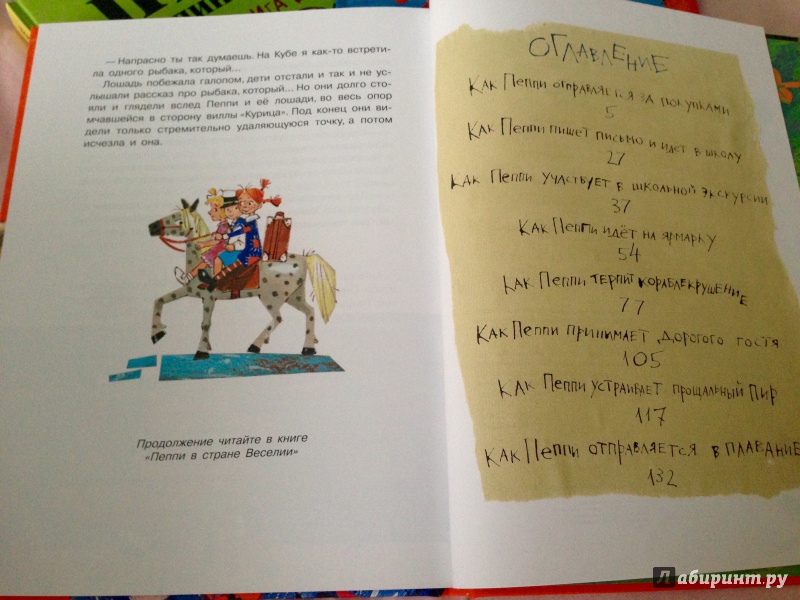 — Напрасно ты так думаешь. На Кубе я как-то встрети-
ла одного рыбака, который...
Лошадь побежала галопом, дети отстали и так и не ус-
лышали рассказ про рыбака, который... Но они долго сто-
яли и глядели вслед Пеппи и её лошади, во весь опор
мчавшейся в сторону виллы «Курица». Под конец они ви-
дели только стремительно удаляющуюся точку, а потом
исчезла и она.
Продолжение читайте в книге
«Пеппи в стране Веселии»
ОГЛАВЛЕНИЕ
Как Пеппи отправляется за покупками
5
Как Пеппи пишет письмо и идет в школу
27
Как Пеппи участвует в школьной экскурсии
37
Как Пеппи идёт на ярмарку
54
Как Пеппи терпит кораблекрушение
77
Как Пеппи принимает дорогого гостя
105
Как Пеппи устраивает прощальный пир
117
Как Пеппи отправляется в плавание
132
Лабиринт.ру